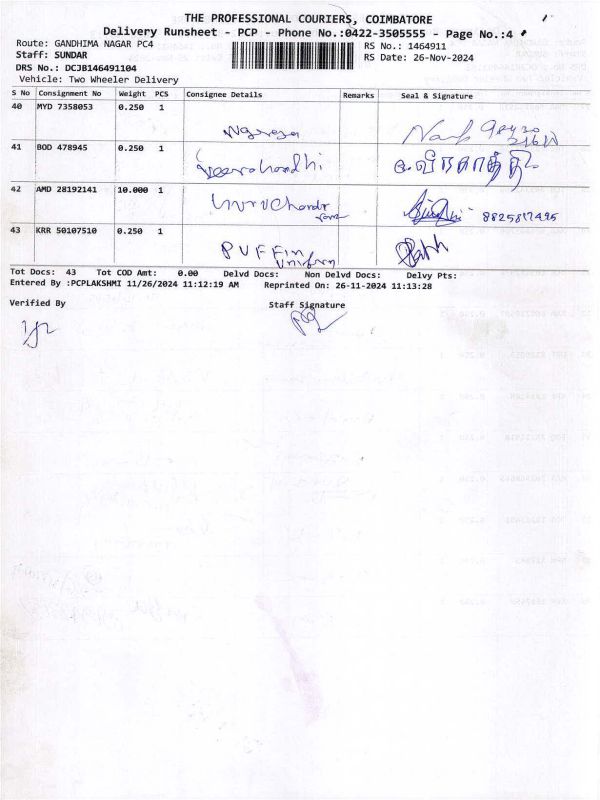 THE PROFESSIONAL COURIERS, COIMBATORE
Delivery Runsheet - PCP - Phone No.:0422-3505555 - Page No.:4
Route: GANDHIMA NAGAR PC4 RS No.: 1464911
Staff: SUNDAR RS Date: 26-Nov-2024
DRS No.: DCJB146491104
Vehicle: Two Wheeler Delivery
S No Consignment No Weight PCS Consignee Details Remarks Seal & Signature
40 MYD 7358053 0.250 1
41 BOD 478945 0.250 1
42 AMD 28192141 10.000 1
8825817495
43 KRR 50107510 0.250 1
PUFFin
Uniform
Tot Docs: 43 Tot COD Amt: 0.00 Delvd Docs: Non Delvd Docs: Delvy Pts:
Entered By :PCPLAKSHMI 11/26/2024 11:12:19 AM Reprinted On: 26-11-2024 11:13:28
Verified By Staff Signature